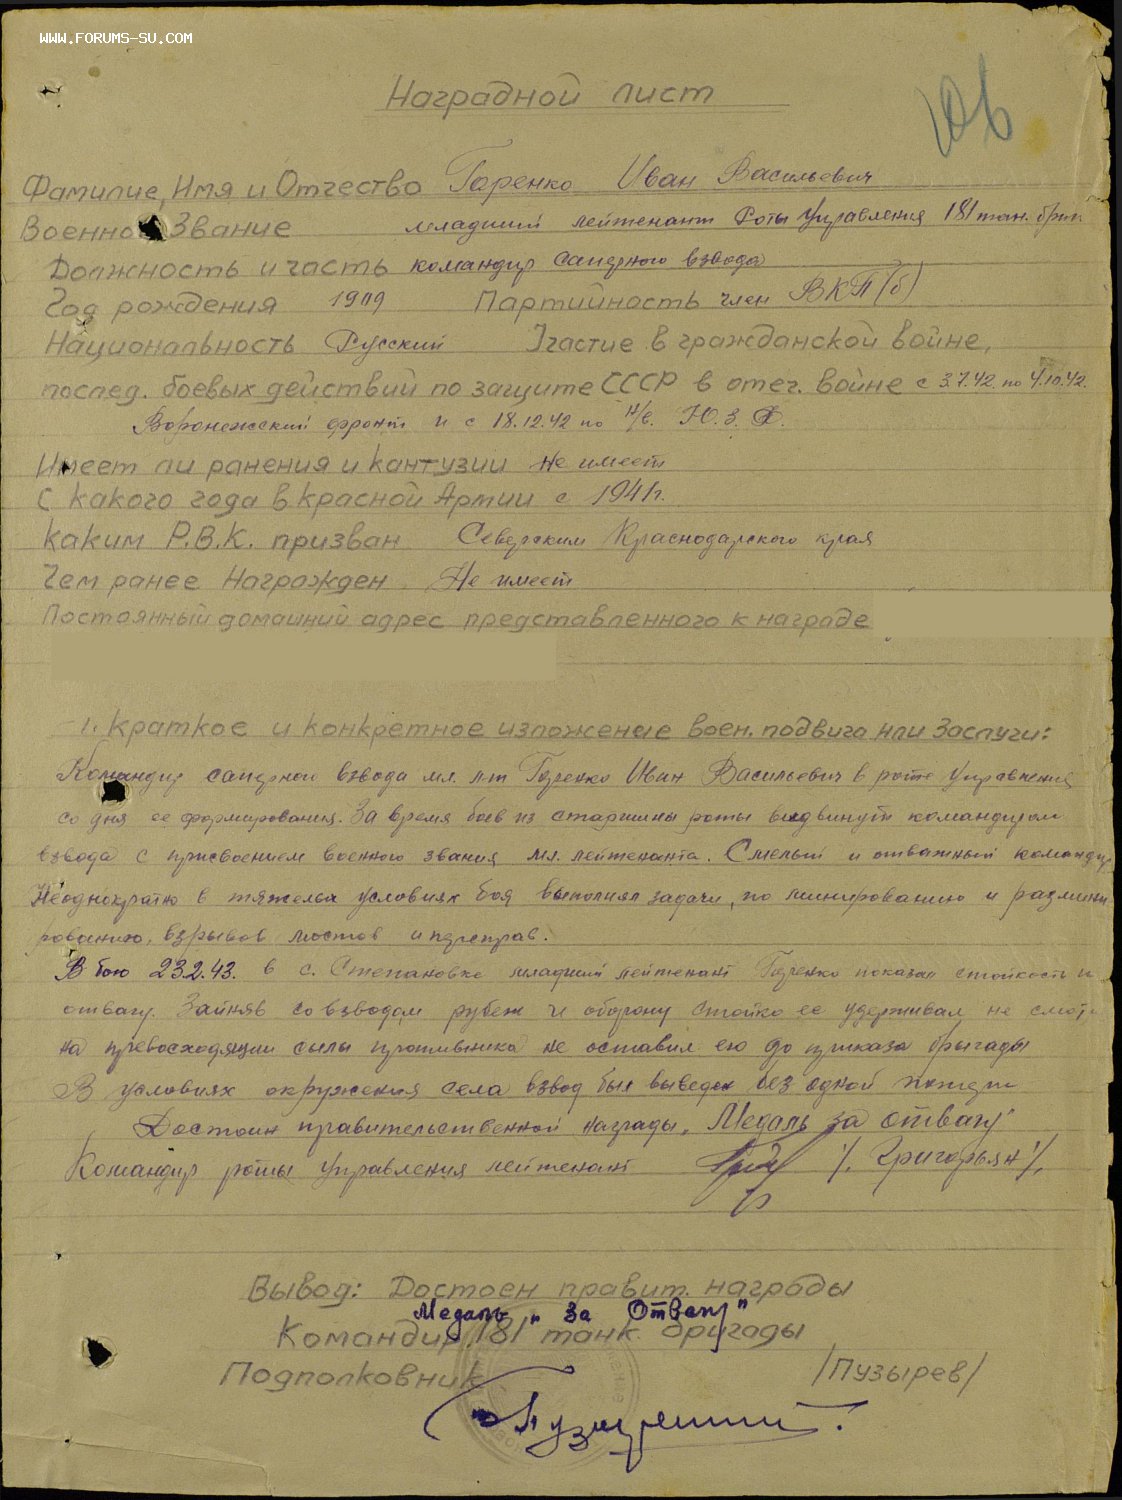 WWW.FORUMS-SU.COM
Наградной лист
Фамилие, Имя и Отчество Горенко Иван Васильевич
Военное Звание младший лейтенант Роты Управления 181 тан. бриг
Должность и часть командир саперного взвода
Год рождения 1909 Партийность член ВКП(б)
Национальность Русский Участие в гражданской войне,
послед. боевых действий по защите СССР в отеч. войне с 3.7.42 по 4.10.42.
Воронежский фронт и с 18.12.42 по н/в. Ю.З.Ф.
Имеет ли ранения и кантузии не имеет
С какого года в красной Армии с 1941г.
Каким Р.В.К. призван Северским Краснодарского края
Чем ранее Награжден Не имеет
Постоянный домашний адрес представленного к награде
1. Краткое и конкретное изложение воен. подвига или Заслуги:
Командир саперного взвода мл. л-т Иван Васильевич в роте Управления
со дня ее формирования. За время боев из старшины роты выдвинут командиром
взвода с присвоением военного звания мл. лейтенанта. Смелый и отважный командир
Неоднократно в тяжелых условиях боя выполнял задачи, по минированию и размини
рованию, взрывов мостов и переправ.
В бою 23.2.43. в с. Степановке младший лейтенант показал стойкость и
отвагу. Заняв со взводом рубеж и оборону стойко ее удерживал не смотр
на превосходящии силы противника не оставил ею до приказа бригады
В условиях окружения села взвод был выведен без одной потери
Достоин правительственной награды "Медаль за отвагу"
Командир роты Управления лейтенант /. Григорьян /.
Вывод: Достоен правит. награды
Медаль "За Отвагу"
Командир 181 танк. бригады
Подполковник /Пузырев/